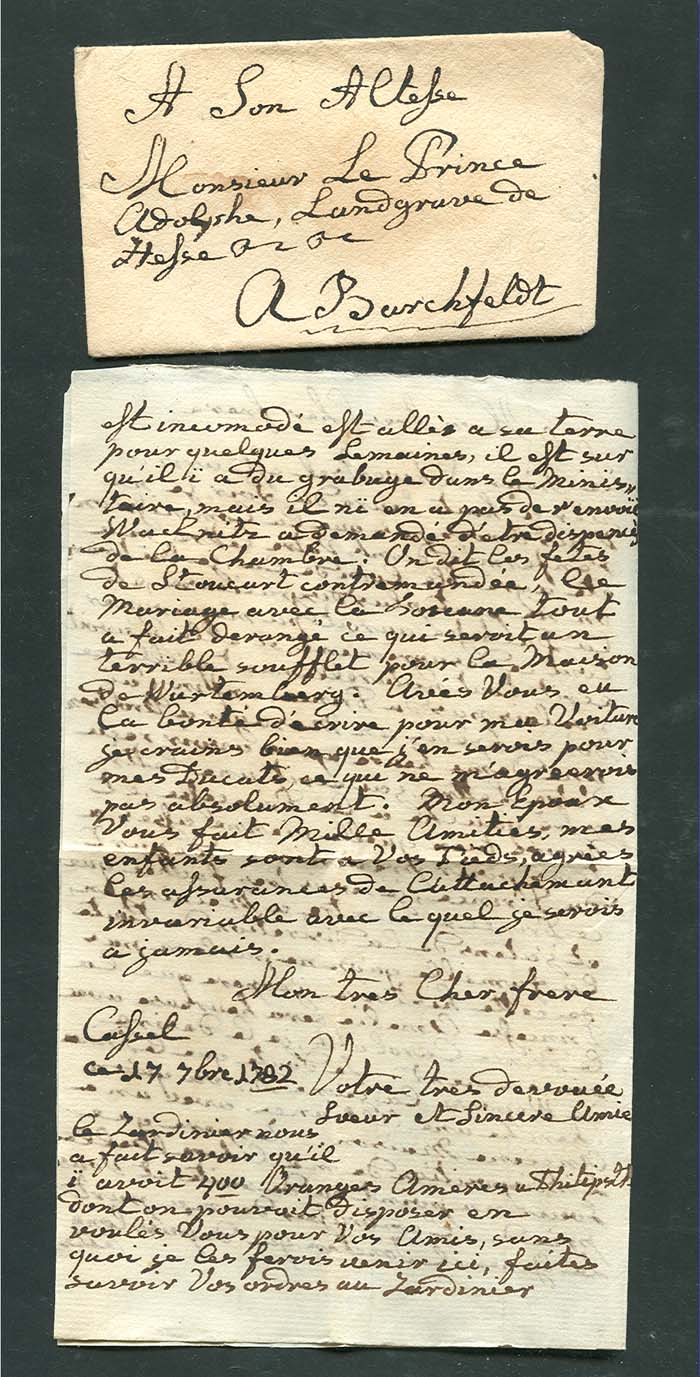 A Son Altesse
Monsieur Le Prince
Adolphe, Landgrave de
Hesse
A Barchfeldt
est incomodé est allès a sa terre
pour quelques semaines, il est sur
qu'il ï a du grabuge dans le Minis,,
teire, mais il nï en a pas de renvoïé
a demandé d'etre dispensé
de la Chambre. On dit les fetes
de Stoucart contremandée, le
Mariage avec la tout
a fait derangé ce qui seroit un
terrible soufflet pour la Maison
de Wurtemberg. Aviés Vous eu
la bonté d'écrire pour ma Voiture
je crains bien que j'en serois pour
mes Ducats, ce qui ne m'agreerois
pas absolument. Mon Epoux
Vous fait Mille Amitiés, mes
enfants sont a Vos Pieds, agrées
les assurances de L'attachemant
invariable avec le quel je serois
a jamais.
Mon tres Cher frere
Cassel
ce 17 7bre 1782
Votre tres devouée
Soeur et Sincere Amie
le Zardinier nous
a fait savoir qu'il
ï avoit 400 Oranges Ameres a
dont on pouvoit disposer en
voulés Vous pour Vos Amis, sans
quoi je les ferois venir ici, faites
savoir Vos ordres au Zardinier